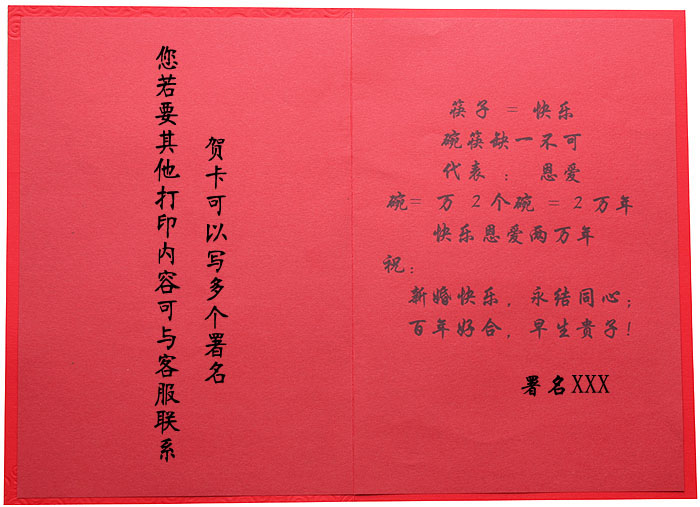 贺卡可以写多个署名
您若要其他打印内容可与客服联系
筷子 = 快乐
碗筷缺一不可
代表： 恩爱
碗= 万 2个碗 = 2万年
快乐恩爱两万年
祝：
新婚快乐，永结同心；
百年好合，早生贵子！
署名XXX